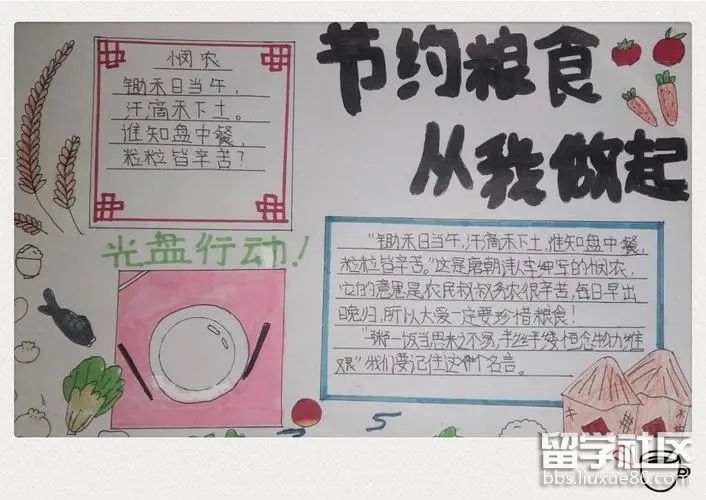 节约粮食
从我做起
悯农
锄禾日当午，
汗滴禾下土。
谁知盘中餐，
粒粒皆辛苦？
光盘行动！
“锄禾日当午，汗滴禾下土，谁知盘中餐，
粒粒皆辛苦。”这是唐朝诗人李绅写的悯农，
它的意思是农民叔叔务农很辛苦，每日早出
晚归，所以大爱一定要珍惜粮食！
“粥一饭当思来之不易，半丝半缕恒念物力维
艰”我们要记住这个名言。
5
留学社区
bbs.liuxue86.com